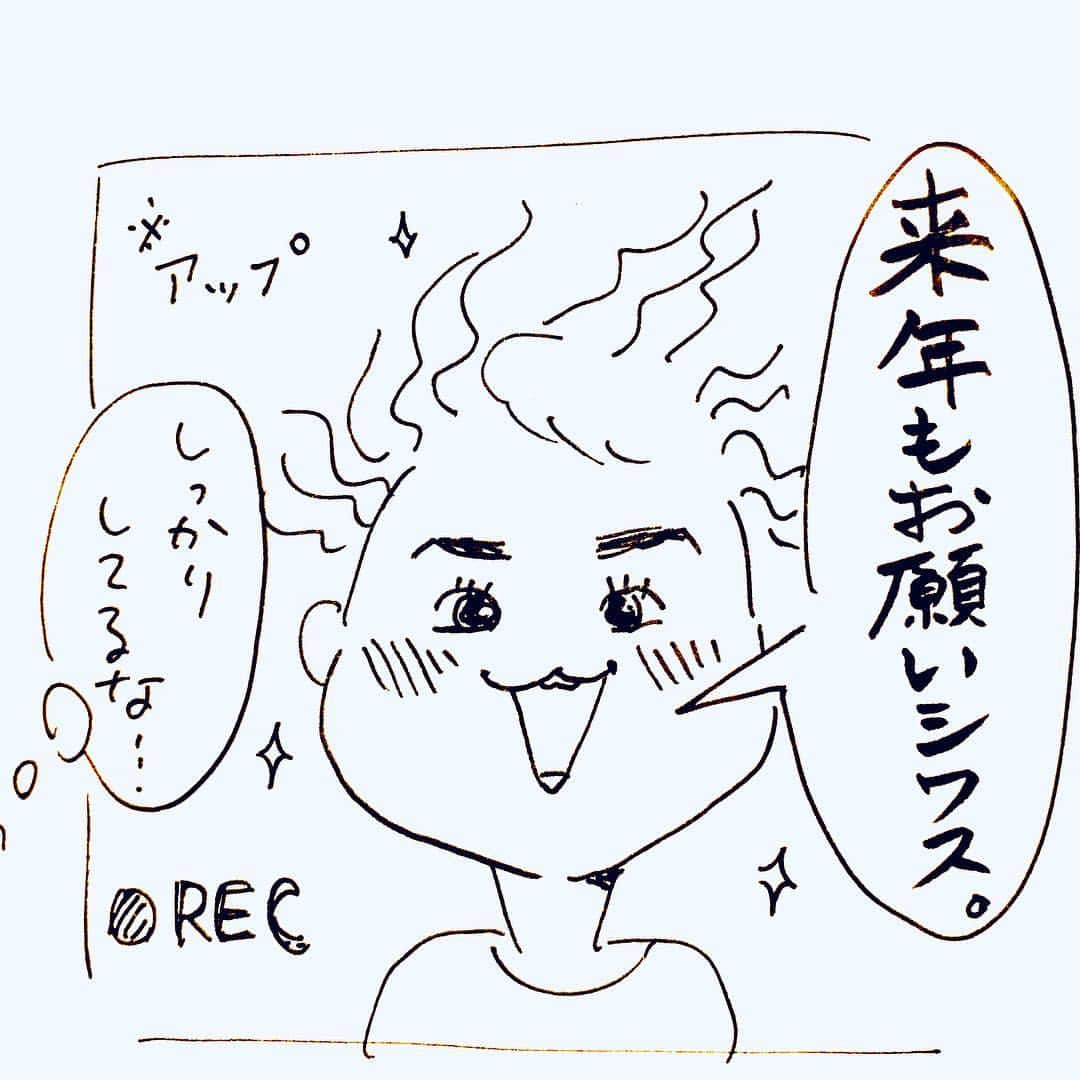 来年もお願いシワス。
※アップ
しっかり
してるな…
REC